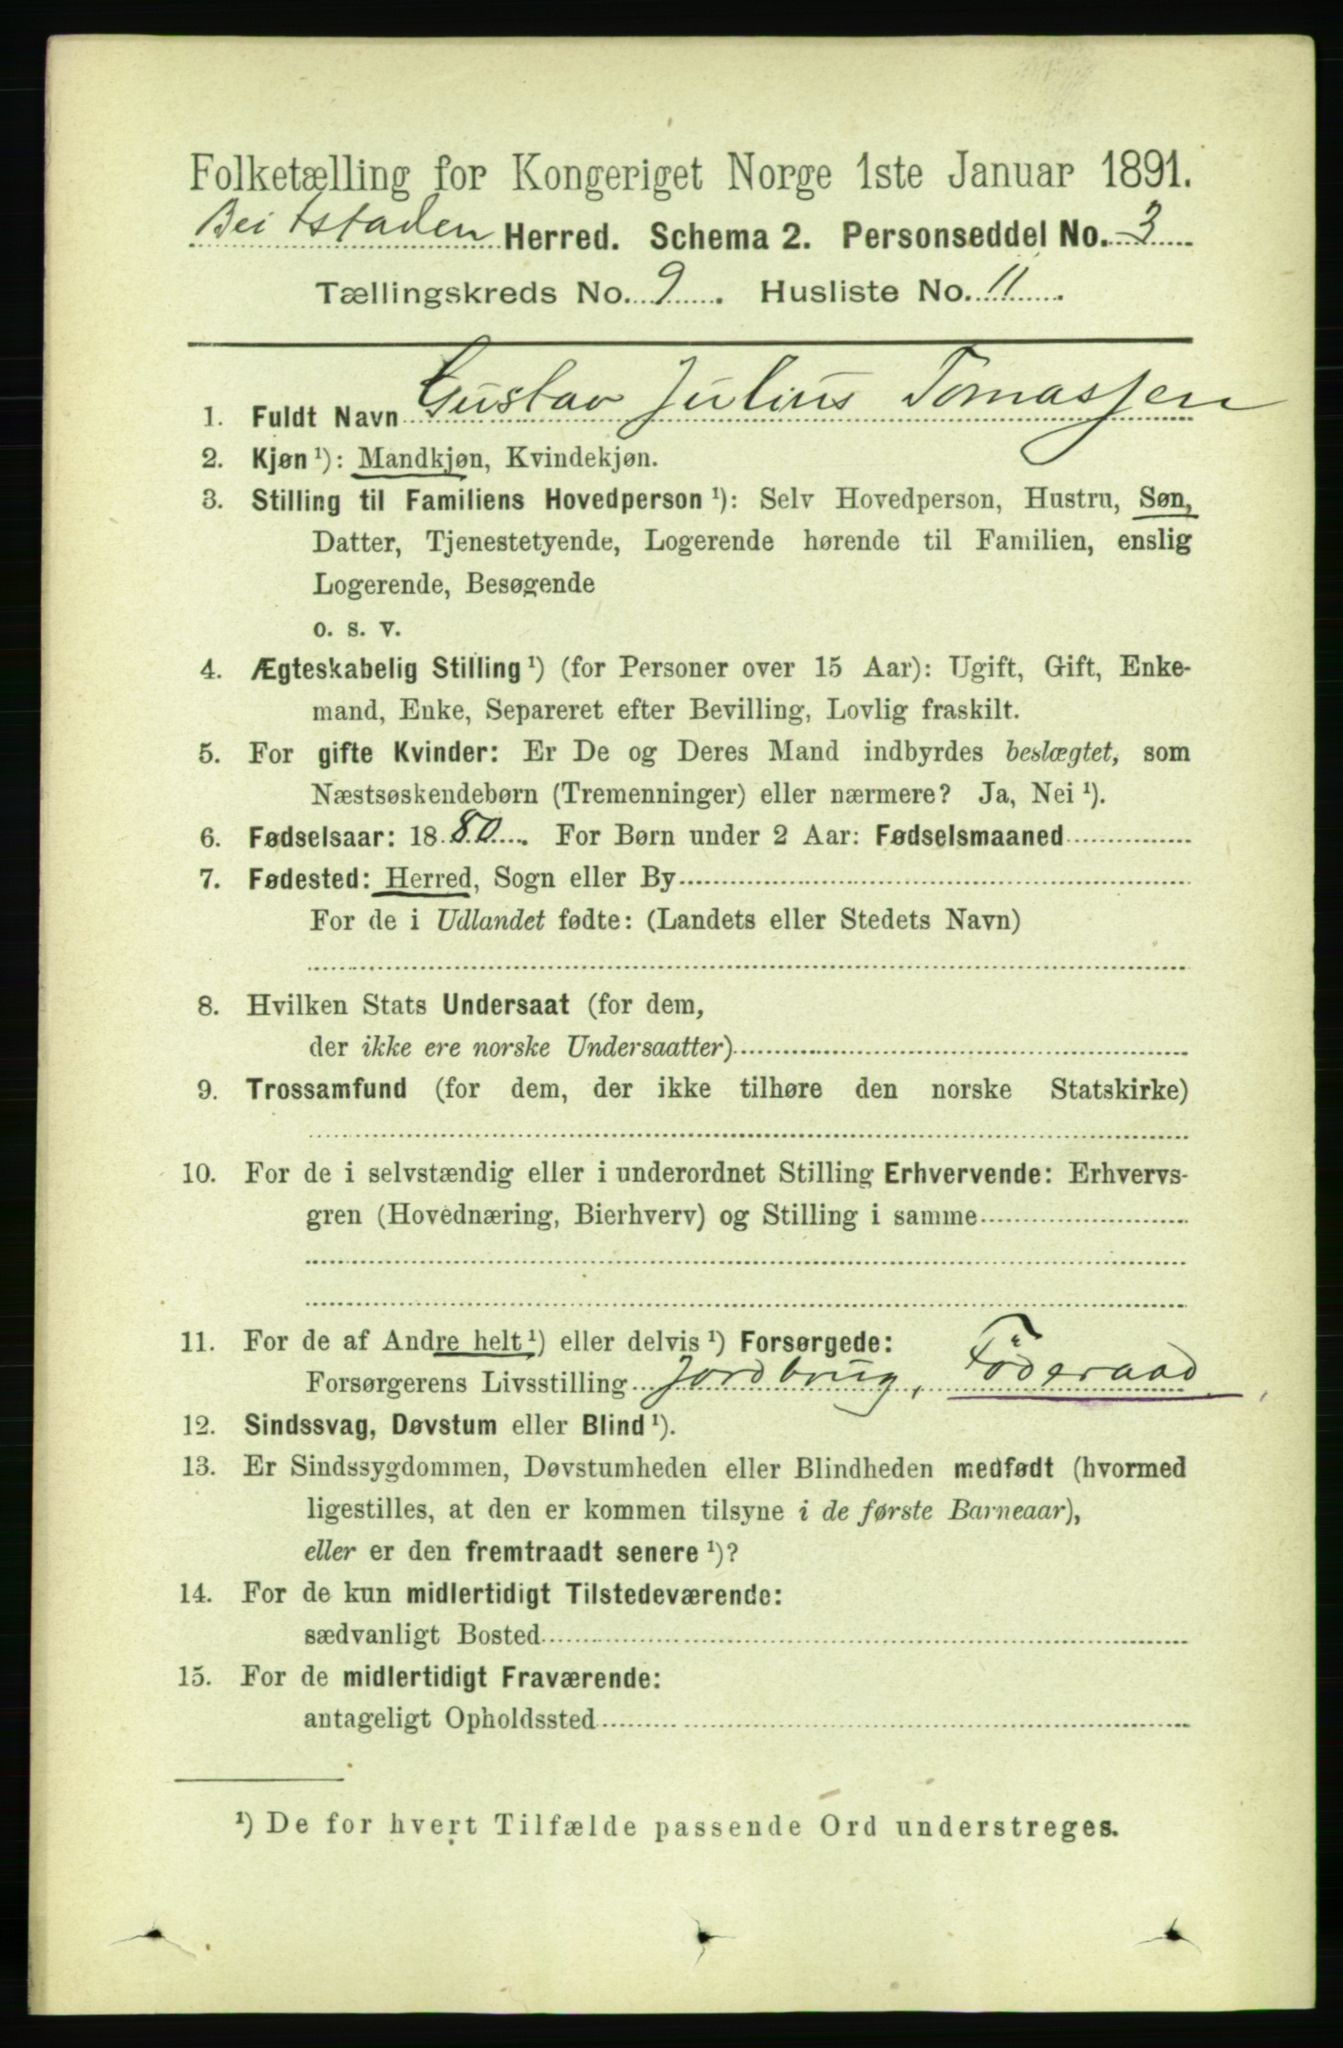 Folketælling for Kongeriget Norge 1ste Januar 1891.
Beitstaden Herred. Schema 2. Personseddel No. 3
Tællingskreds No. 9. Husliste No. 11.
1. Fuldt Navn Gustav Julius Tomassen
2. Kjøn ¹): Mandkjøn, Kvindekjøn.
3. Stilling til Familiens Hovedperson ¹): Selv Hovedperson, Hustru, Søn,
Datter, Tjenestetyende, Logerende hørende til Familien, enslig
Logerende, Besøgende
o. s. v.
4. Ægteskabelig Stilling ¹) (for Personer over 15 Aar): Ugift, Gift, Enke-
mand, Enke, Separeret efter Bevilling, Lovlig fraskilt.
5. For gifte Kvinder: Er De og Deres Mand indbyrdes beslægtet, som
Næstsøskendebørn (Tremenninger) eller nærmere? Ja, Nei ¹).
6. Fødselsaar: 1880. For Børn under 2 Aar: Fødselsmaaned
7. Fødested: Herred, Sogn eller By
For de i Udlandet fødte: (Landets eller Stedets Navn)
8. Hvilken Stats Undersaat (for dem,
der ikke ere norske Undersaatter)
9. Trossamfund (for dem, der ikke tilhøre den norske Statskirke)
10. For de i selvstændig eller i underordnet Stilling Erhvervende: Erhvervs-
gren (Hovednæring, Bierhverv) og Stilling i samme
11. For de af Andre helt ¹) eller delvis ¹) Forsørgede:
Forsørgerens Livsstilling Jordbrug, Föderaad
12. Sindssvag, Døvstum eller Blind ¹).
13. Er Sindssygdommen, Døvstumheden eller Blindheden medfødt (hvormed
ligestilles, at den er kommen tilsyne i de første Barneaar),
eller er den fremtraadt senere ¹)?
14. For de kun midlertidigt Tilstedeværende:
sædvanligt Bosted
15. For de midlertidigt Fraværende:
antageligt Opholdssted
¹) De for hvert Tilfælde passende Ord understreges.